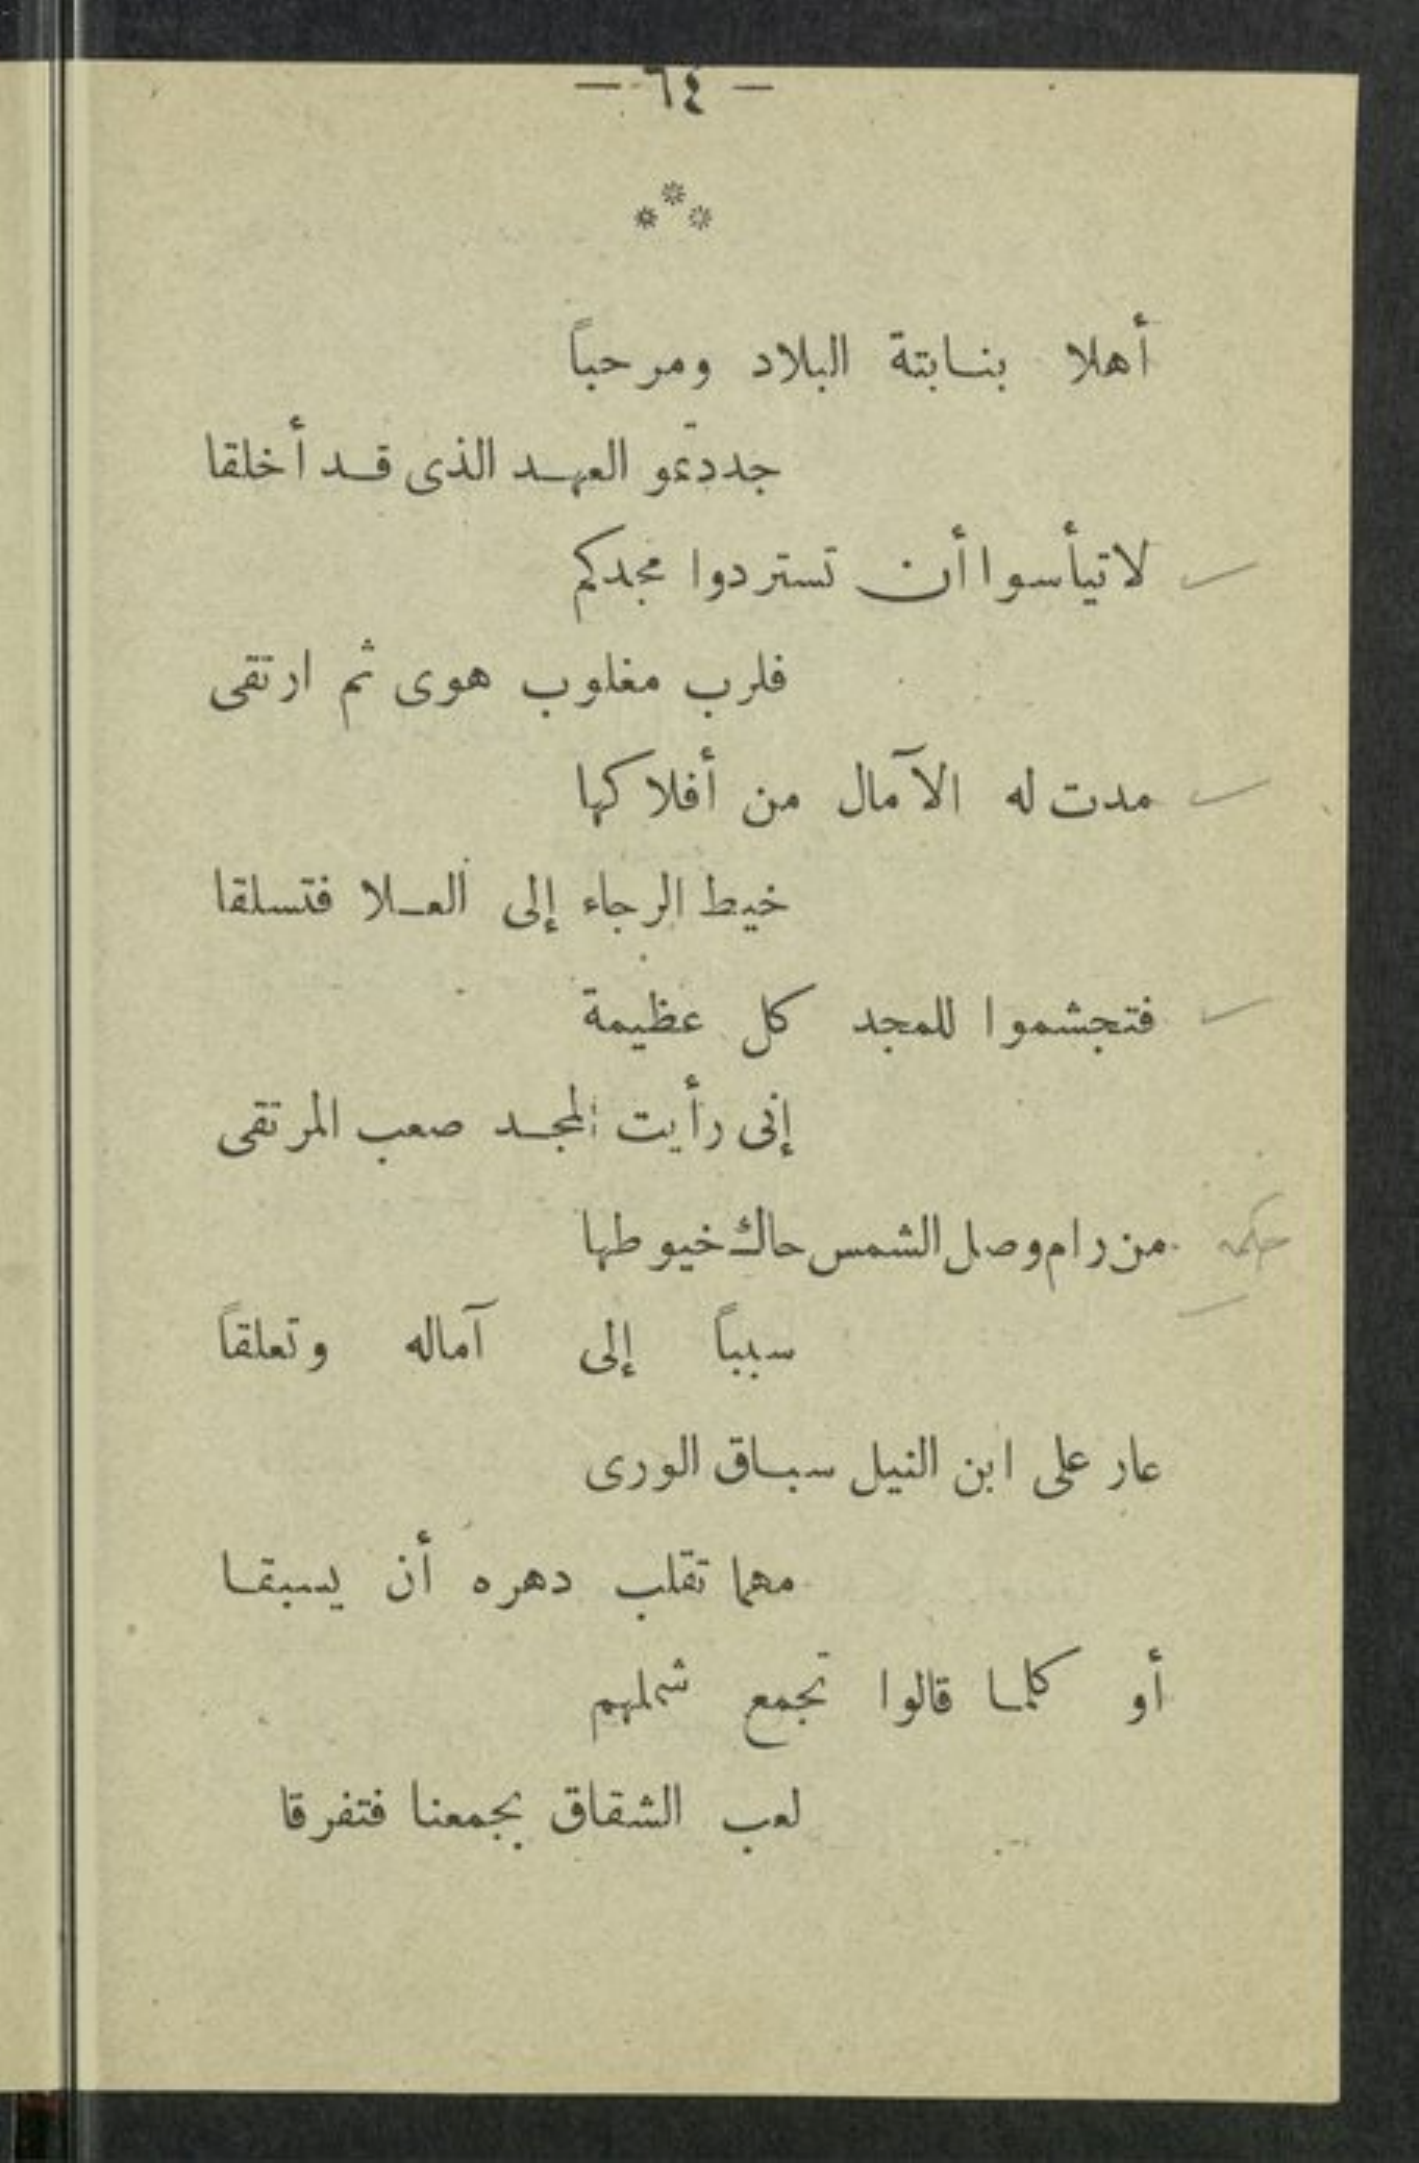 — ٦٤ —
***
أهلا بنابتة البلاد ومرحباً
جددتمو العهد الذى قد أخلقا
لا تيأسوا أن تستردوا مجدكم
فلرب مغلوب هوى ثم ارتقى
مدت له الآمال من أفلاكها
خيط الرجاء إلى العلا فتسلقا
فتجشموا للمجد كل عظيمة
إنى رأيت المجد صعب المرتقى
حكمه من رام وصل الشمس حاك خيوطها
سبباً إلى آماله وتعلقاً
عار على ابن النيل سباق الورى
مهما تقلب دهره أن يسبقا
أو كلما قالوا تجمع شملهم
لعب الشقاق بجمعنا فتفرقا